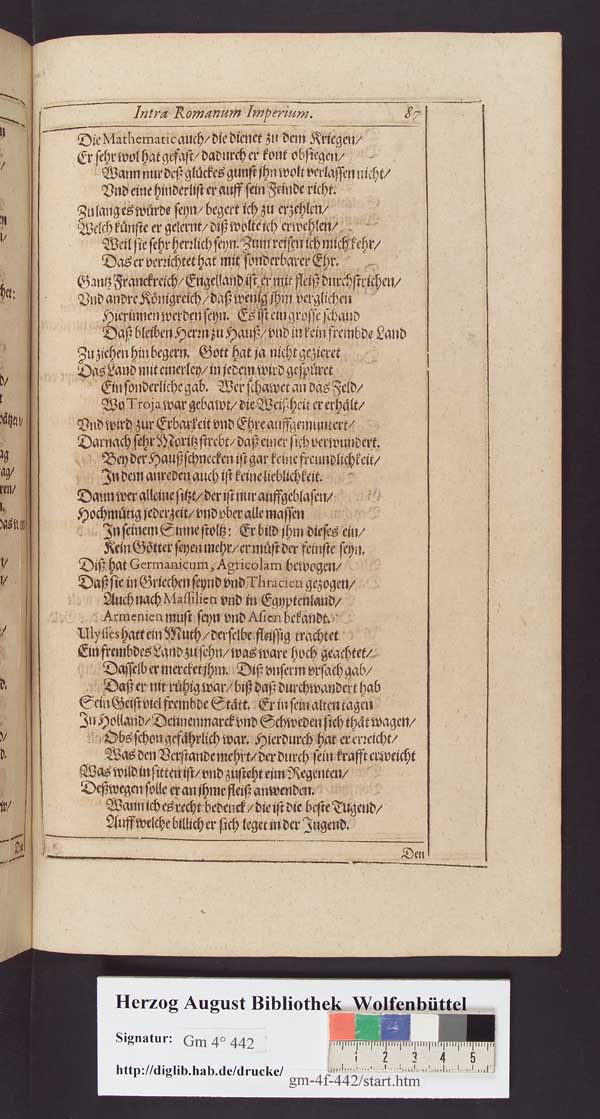 Intra Romanum Imperium. 87
Die Mathematic auch/ die dienet zu dem Kriegen/
Er sehr wol hat gefast/ dadurch er kont obsiegen/
Wann nur deß glückes gunst jhn wolt verlassen nicht/
Vnd eine hinderlist er auff sein Feinde richt.
Zulang es würde seyn/ begert ich zu erzehlen/
Welch künste er gelernt/ diß wolte ich erwehlen/
Weil sie sehr herrlich seyn. Zum reisen ich mich kehr/
Das er verrichtet hat mit sonderbarer Ehr.
Gantz Franckreich/ Engelland ist er mit fleiß durchstrichen/
Vnd andre Königreich/ daß wenig jhm verglichen
Hierinnen werden seyn. Es ist ein grosse schand
Daß bleiben Herrn zu Hauß/ vnd in kein frembde Land
Zu ziehen hin begern. Gott hat ja nicht gezieret
Das Land mit einerley/ in jedem wird gespüret
Ein sonderliche gab. Wer schawet an das Feld/
Wo Troja war gebawt/ die Weißheit er erhält/
Vnd wird zur Erbarkeit vnd Ehre auffgemuntert/
Darnach sehr Moritz strebt/ daß einer sich verwundert.
Bey der Haußschnecken ist gar keine freundlichkeit/
In dem anreden auch ist keine lieblichkeit.
Dann wer alleine sitzt/ der ist nur auffgeblasen/
Hochmütig jederzeit/ vnd vber alle massen
In seinem Sinne stoltz: Er bild jhm dieses ein/
Kein Götter seyen mehr/ er müst der feinste seyn.
Diß hat Germanicum, Agricolam bewogen/
Daß sie in Griechen seynd vnd Thracien gezogen/
Auch nach Massilien vnd in Egyptenland/
Armenien must seyn vnd Asien bekandt.
Ulysses hatt ein Muth/ derselbe fleissig trachtet
Ein frembdes Land zu sehn/ was ware hoch geachtet/
Dasselb er mercket jhm. Diß vnserm vrsach gab/
Daß er nit rühig war/ biß daß durchwandert hab
Sein Geist viel frembde Stätt. Er in sein alten tagen
In Holland/ Dennenmarck vnd Schweden sich thät wagen/
Obs schon gefährlich war. Hierdurch hat er erreicht/
Was den Verstande mehrt/ der durch sein krafft erweicht
Was wild in sitten ist/ vnd zusteht eim Regenten/
Deßwegen solle er an jhme fleiß anwenden.
Wann ich es recht bedenck/ die ist die beste Tugend/
Auff welche billich er sich leget in der Jugend.
Den
Herzog August Bibliothek Wolfenbüttel
Signatur: Gm 4° 442
http://diglib.hab.de/drucke/ gm-4f-442/start.htm
1 2 3 4 5